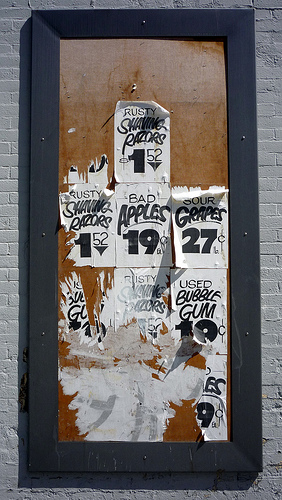 RUSTY
SHAVING
RAZORS
1 52
RUSTY
SHAVING
RAZORS
1 52
BAD
APPLES
19¢
SOUR
GRAPES
27¢
RUSTY
USED
BUBBLE
GUM
19¢
ES
9¢